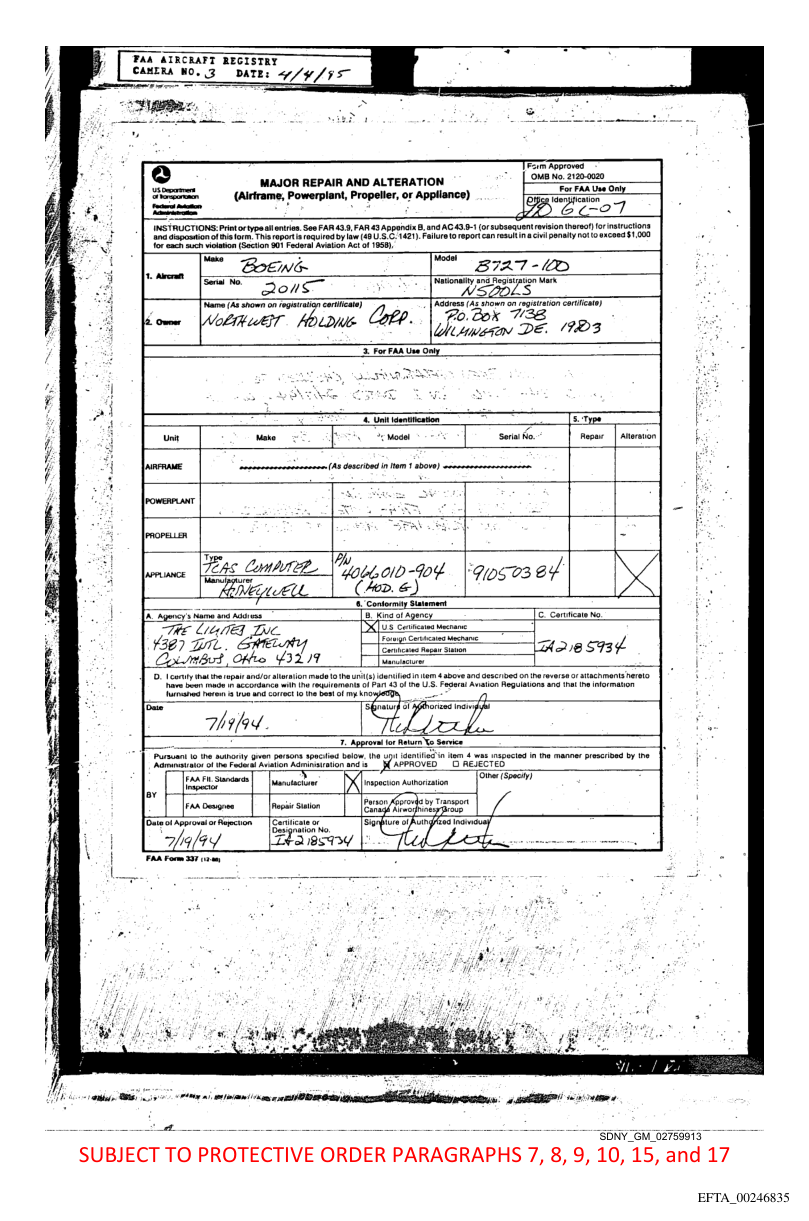 FAA AIRCRAFT REGISTRY
CAMERA NO. 3 DATE: 4/4/95
US Department
of Transportation
Federal Aviation
Administration
MAJOR REPAIR AND ALTERATION
(Airframe, Powerplant, Propeller, or Appliance)
Form Approved
OMB No. 2120-0020
For FAA Use Only
Office Identification
GL-07
INSTRUCTIONS: Print or type all entries. See FAR 43.9, FAR 43 Appendix B, and AC 43.9-1 (or subsequent revision thereof) for instructions
and disposition of this form. This report is required by law (49 U.S.C. 1421). Failure to report can result in a civil penalty not to exceed $1,000
for each such violation (Section 901 Federal Aviation Act of 1958).
1. Aircraft
Make
BOEING
Model
B727-100
Serial No.
20115
Nationality and Registration Mark
N500LS
2. Owner
Name (As shown on registration certificate)
NORTHWEST HOLDING CORP.
Address (As shown on registration certificate)
P.O. BOX 7138
WILMINGTON DE. 19803
3. For FAA Use Only
4. Unit Identification
5. Type
Unit
Make
Model
Serial No.
Repair
Alteration
AIRFRAME
(As described in Item 1 above)
POWERPLANT
PROPELLER
APPLIANCE
Type
TCAS COMPUTER
Manufacturer
HONEYWELL
P/N
4066010-904
(MOD. G)
91050384
6. Conformity Statement
A. Agency's Name and Address
THE LIMITED, INC
4387 INTL. GATEWAY
COLUMBUS, OHIO 43219
B. Kind of Agency
X U.S. Certificated Mechanic
Foreign Certificated Mechanic
Certificated Repair Station
Manufacturer
C. Certificate No.
IA2185934
D. I certify that the repair and/or alteration made to the unit(s) identified in item 4 above and described on the reverse or attachments hereto
have been made in accordance with the requirements of Part 43 of the U.S. Federal Aviation Regulations and that the information
furnished herein is true and correct to the best of my knowledge.
Date
7/19/94.
Signature of Authorized Individual
7. Approval for Return To Service
Pursuant to the authority given persons specified below, the unit identified in item 4 was inspected in the manner prescribed by the
Administrator of the Federal Aviation Administration and is X APPROVED □ REJECTED
BY
FAA Flt. Standards
Inspector
Manufacturer
X Inspection Authorization
Other (Specify)
FAA Designee
Repair Station
Person Approved by Transport
Canada Airworthiness Group
Date of Approval or Rejection
7/19/94
Certificate or
Designation No.
IA2185934
Signature of Authorized Individual
FAA Form 337 (12-88)
SDNY_GM_02759913
SUBJECT TO PROTECTIVE ORDER PARAGRAPHS 7, 8, 9, 10, 15, and 17
EFTA_00246835